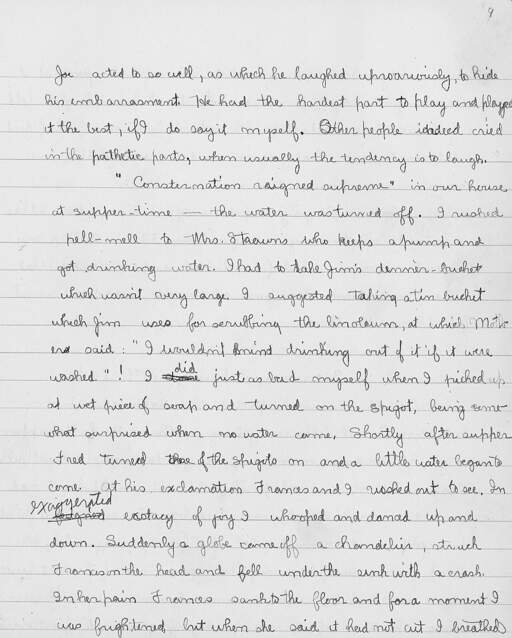 9
Joe acted to so well, as which he laughed uproariously, to hide
his embarrasment. He had the hardest part to play and played
it the best, if I do say it myself. Other people indeed cried
in the pathetic parts, when usually the tendency is to laugh.
"Consternation raigned supreme" in our house
at supper-time — the water was turned off. I rushed
pell-mell to Mrs. who keeps a pump and
got drinking water. I had to take Jim's dinner-bucket
which wasn't very large. I suggested taking a tin bucket
which Jim uses for scrubbing the linoleum, at which Moth-
er said: "I wouldn't mind drinking out of it if it were
washed"! I did just as bad myself when I picked up
a wet piece of soap and turned on the spigot, being some-
what surprised when no water came. Shortly after supper
Fred turned one of the spigots on and a little water began to
come. At his exclamation Frances and I rushed out to see. In
exaggerated exstacy of joy I whooped and danced up and
down. Suddenly a globe came off a chandelier, struck
Frances on the head and fell under the sink with a crash.
In her pain Frances sank to the floor and for a moment I
was frightened, but when she said it had not cut I breathed